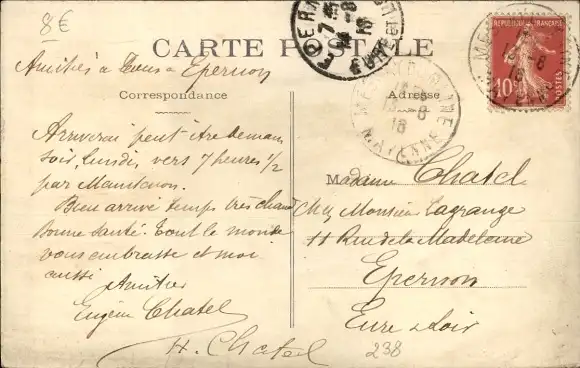 8€
CARTE POSTALE
Amitiés a Tous a Epernon
Correspondance
Adresse
Arriverai peut être demain
soir, lundi, vers 7 heures 1/2
par Maintenon.
Bien arrivé temps très chaud
bonne santé. Tout le monde
vous embrasse et moi
aussi
Amitiés
Eugène Chatel
H. Chatel
Madame Chatel
Chez Monsieur Lagrange
11 Rue de la Madeleine
Epernon
Eure & Loir
238
REPUBLIQUE FRANÇAISE
10c
POSTES
MAYENNE
18